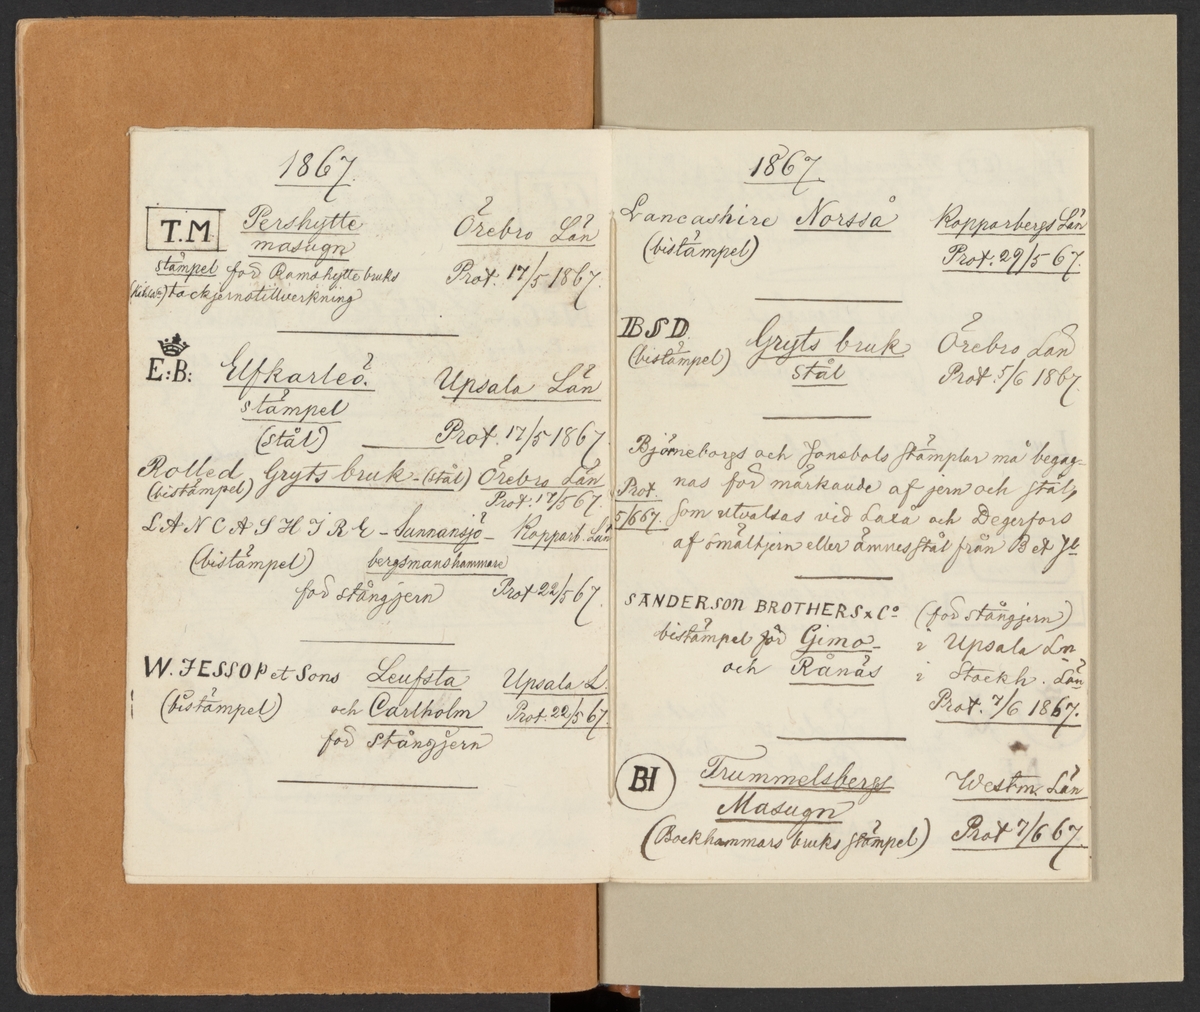 1867.
T.M Pershytte Örebro Län
masugn
stämpel för Ramshytte bruks Prot. 17/5 1867.
tackjernstillverkning
E:B: Elfkarleö. Upsala Län
stämpel
(stål) Prot. 17/5 1867.
Rolled Gryts bruk - (stål) Örebro Län
(bistämpel) Prot. 17/5 67.
LANCASHIRE - Sunnansjö - Koppart. Län
(bistämpel) bergsmanshammare
för stångjern Prot 22/5 67.
W. JESSOP et Sons Leufsta Upsala L.
(bistämpel) och Carlholm Prot. 22/5 67.
för stångjern
1867.
Lancashire Norsså Kopparbergs Län
(bistämpel) Prot. 29/5 67.
BSD Gryts bruk Örebro Län
(bistämpel) stål Prot. 5/6 1867.
Björneborgs och Jonsbols stämplar må begag-
Prot. nas för märkande af jern och stål,
5/6 67. som utvalsas vid Laxå och Degerfors
af omältjern eller ämnesstål från B et J
SANDERSON BROTHERS & Co (för stångjern)
bistämpel för Gimo i Upsala Ln
och Rånäs i Stockh. Län
Prot. 7/6 1867.
BH Trummelsbergs Westm. Län
Masugn
(Bockhammars bruks stämpel) Prot 7/6 67.